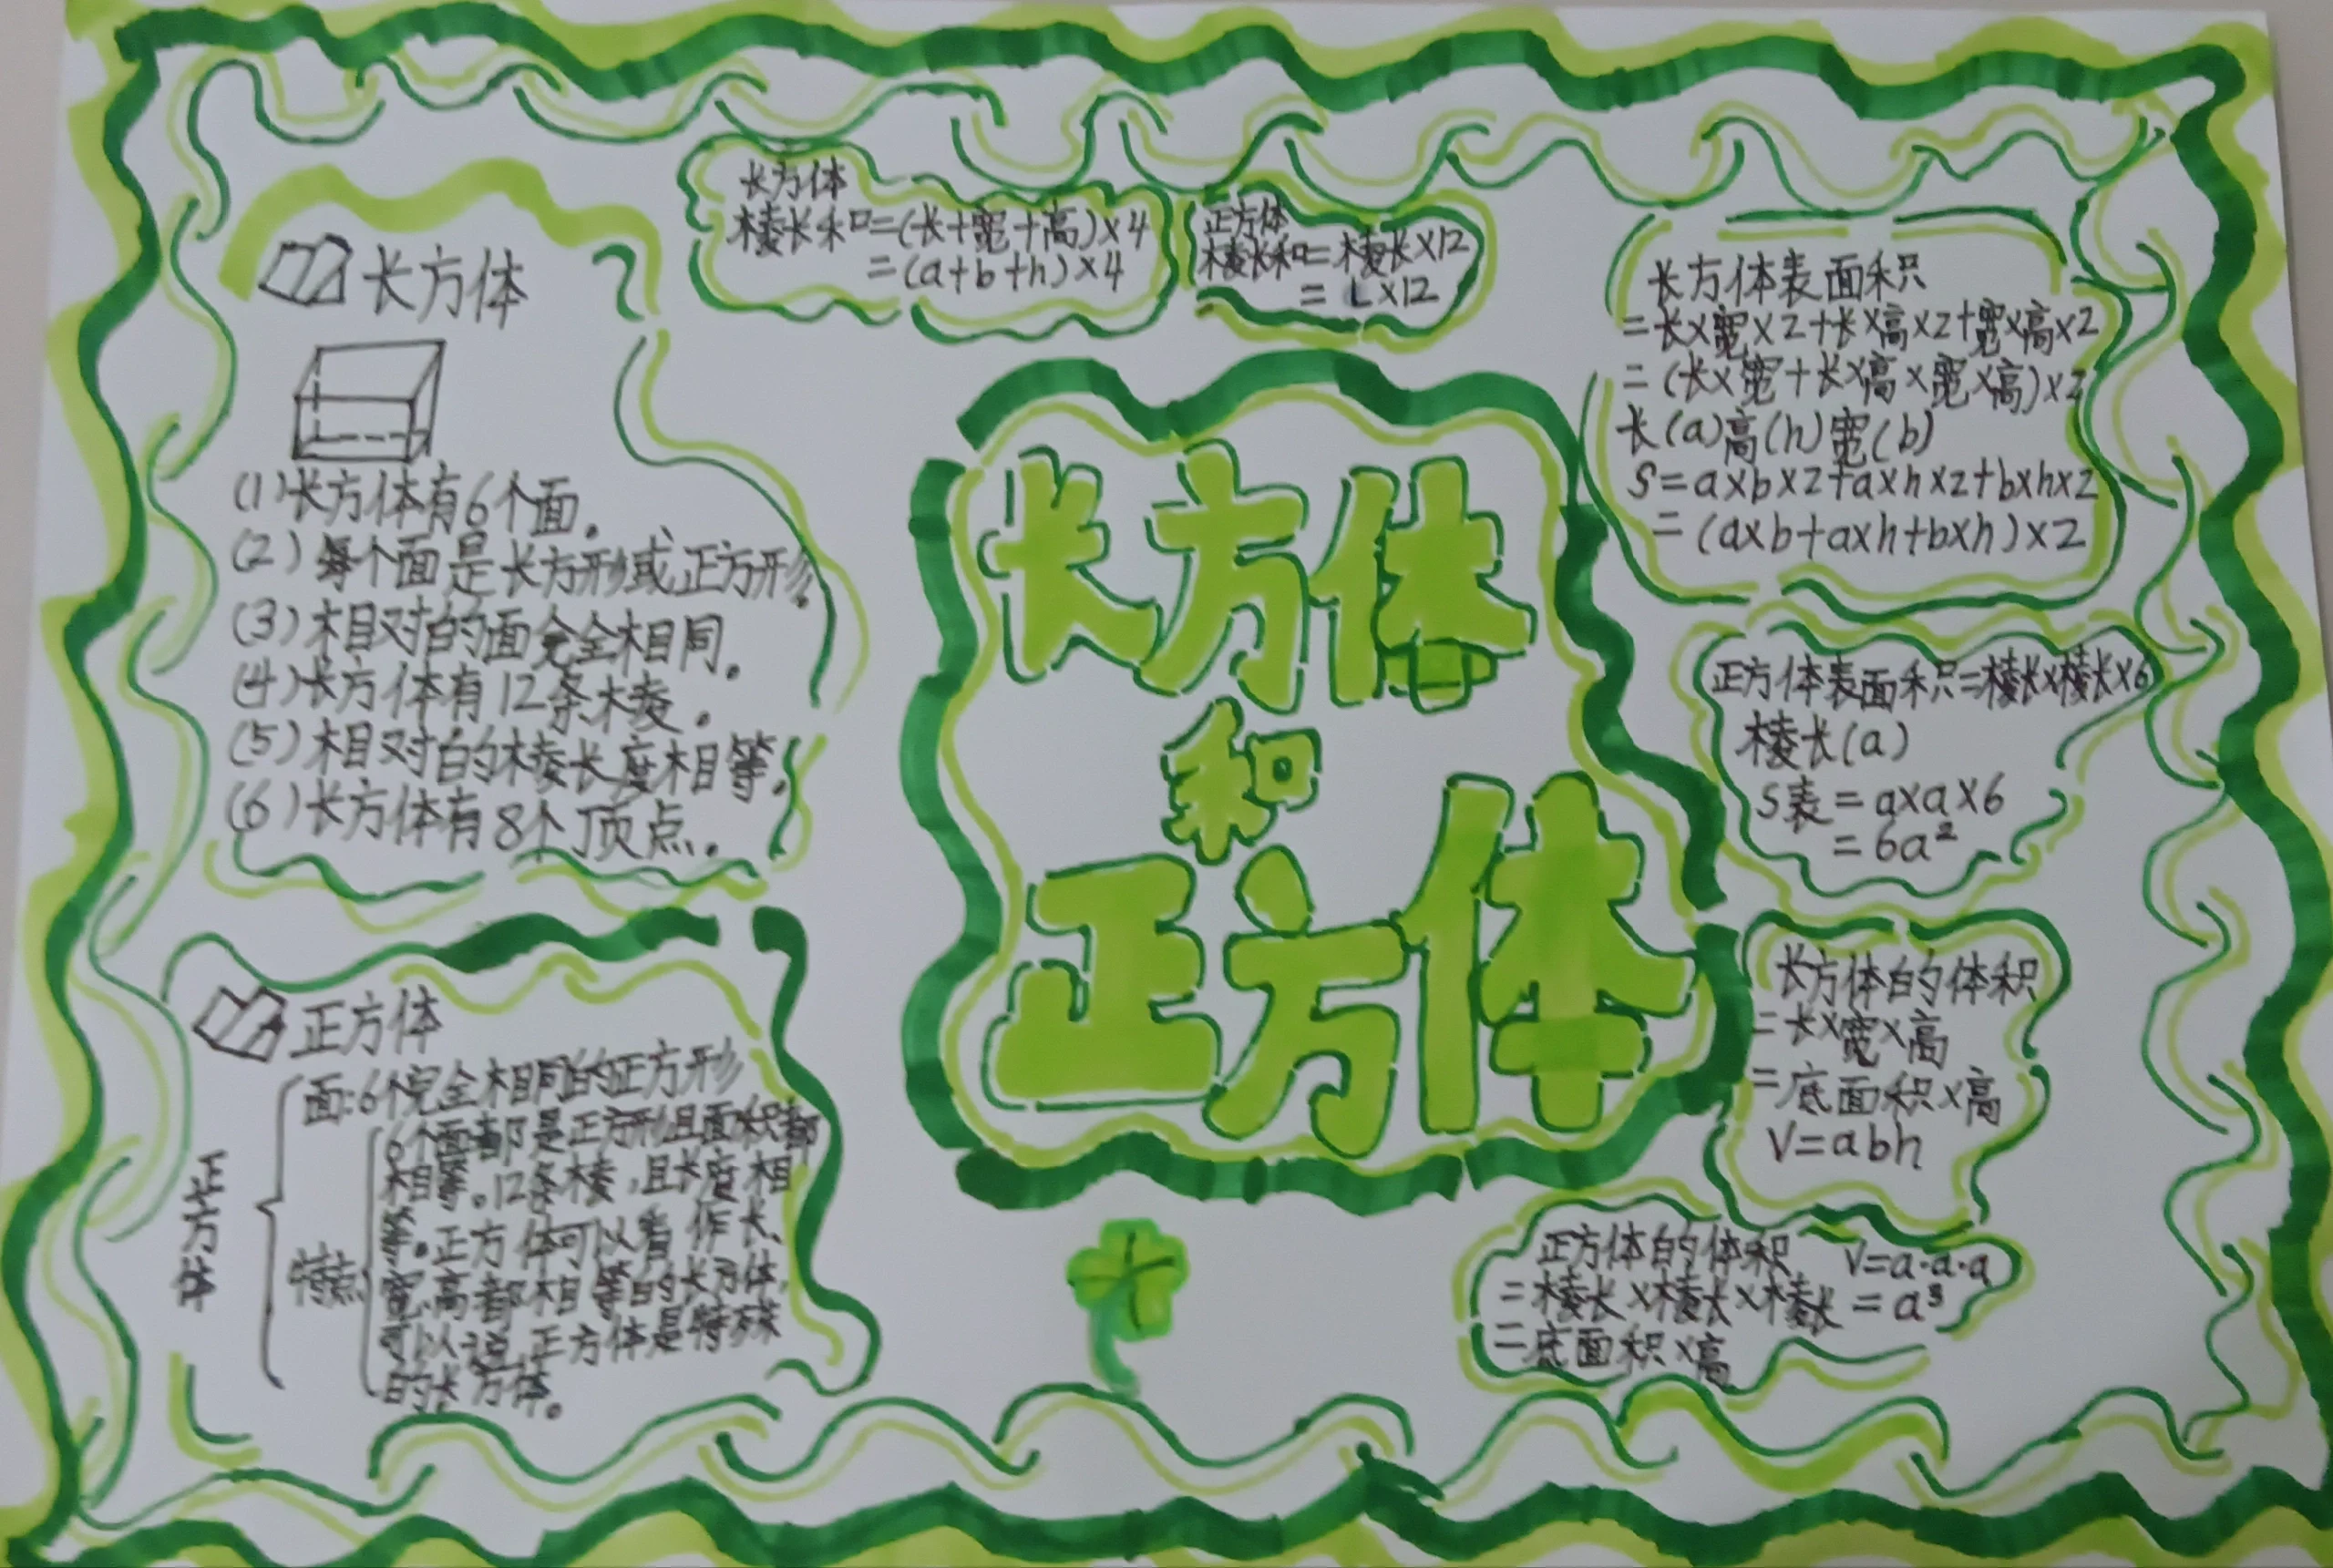 长方体
(1)长方体有6个面。
(2)每个面是长方形或正方形。
(3)相对的面完全相同。
(4)长方体有12条棱。
(5)相对的棱长度相等。
(6)长方体有8个顶点。
正方体
正方体
面:6个完全相同的正方形
特点
6个面都是正方形且面积都
相等。12条棱,且长度相
等。正方体可以看作长、
宽、高都相等的长方体,
可以说,正方体是特殊
的长方体。
长方体
棱长和=(长+宽+高)×4
=(a+b+h)×4
正方体
棱长和=棱长×12
=L×12
长方体
和
正方体
长方体表面积
=长×宽×2+长×高×2+宽×高×2
=(长×宽+长×高×宽×高)×2
长(a)高(h)宽(b)
S=a×b×2+a×h×2+b×h×2
=(a×b+a×h+b×h)×2
正方体表面积=棱长×棱长×6
棱长(a)
S表=a×a×6
=6a²
长方体的体积
=长×宽×高
=底面积×高
V=abh
正方体的体积 V=a·a·a
=棱长×棱长×棱长=a³
=底面积×高